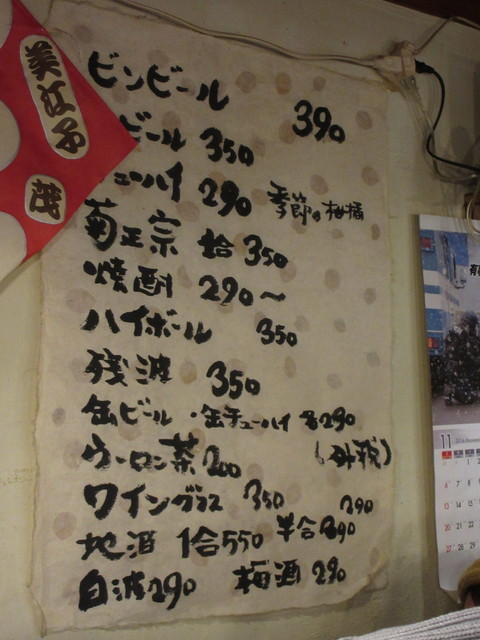 美江子
茂
ビンビール 390
ビール 350
ューハイ 290 季節の柑橘
菊正宗 冷 350
焼酎 290〜
ハイボール 350
残波 350
缶ビール・缶チューハイ 各290
ウーロン茶 200 (外税)
ワイングラス 350
390
地酒 1合550 半合
白波290 梅酒 290
11
6 7
13 14 15
20 21 22
27 28 29